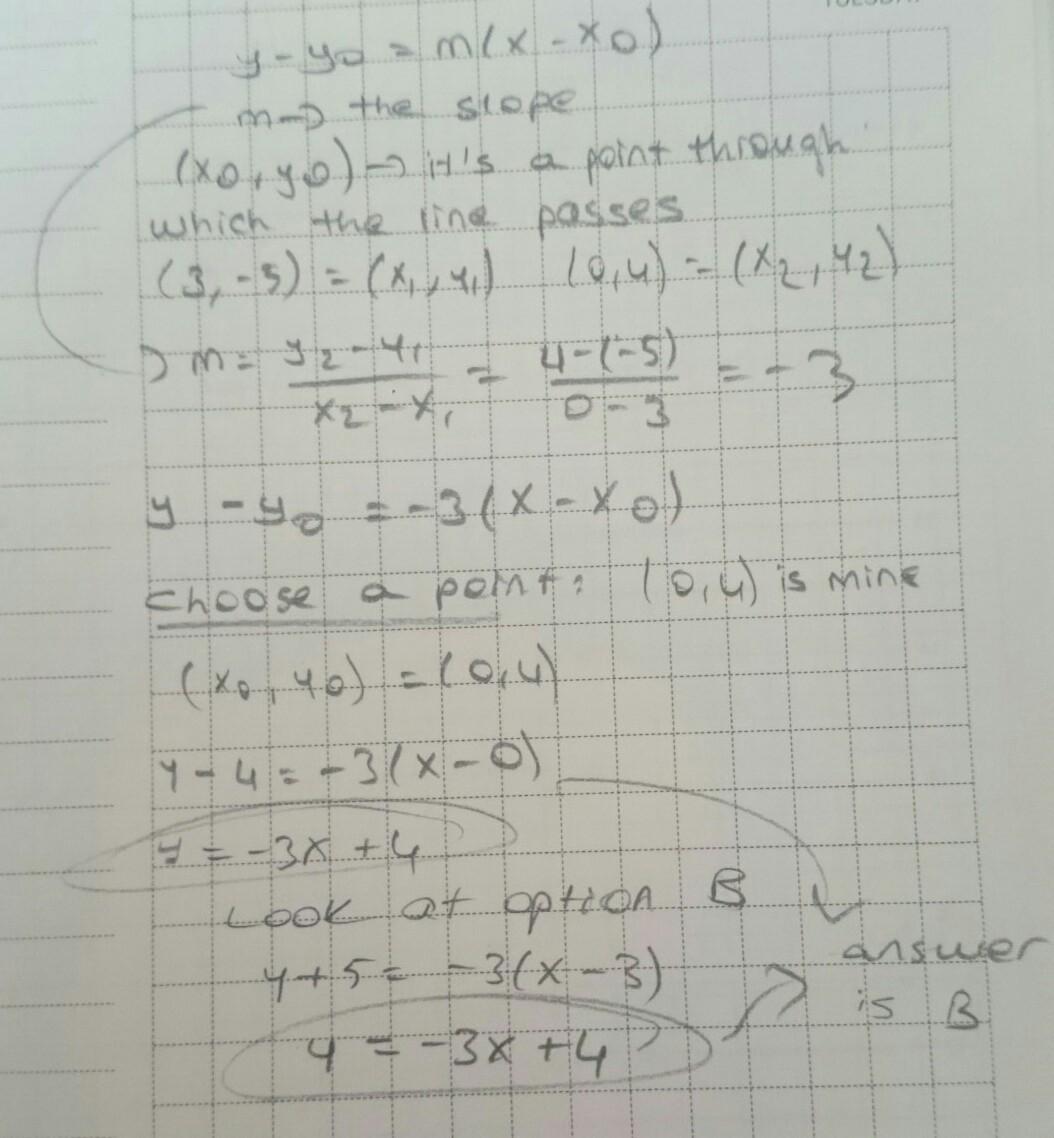 y - y0 = m(x - x0)
m → the slope
(x0, y0) → it's a point through
which the line passes
(3, -5) = (x1, y1) (0,4) = (x2, y2)
m = y2 - y1 / x2 - x1 = 4-(-5) / 0 - 3 = -3
y - y0 = -3(x - x0)
choose a point: (0,4) is mine
(x0, y0) = (0,4)
y - 4 = -3(x - 0)
y = -3x + 4
Look at option B
y + 5 = -3(x - 3)
y = -3x + 4
answer
is B